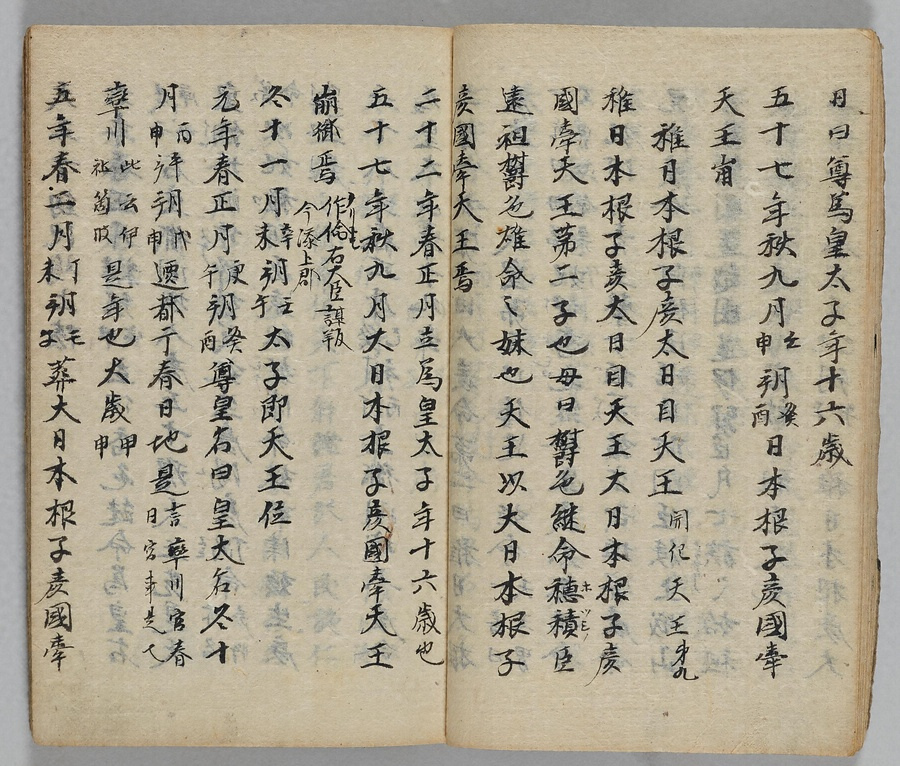 日曰尊為皇太子年十六歳
五十七年秋九月壬申朔癸酉日本根子彦國牽
天王崩
稚日本根子彦太日日天王 開化天王第九
稚日本根子彦太日日天王大日本根子彦
國牽天王第二子也母曰欝色継命穂積臣
遠祖欝色雄命〻妹也天王以大日本根子
彦國牽天王焉
二十二年春正月立為皇太子年十六歳也
五十七年秋九月大日本根子彦國牽天王
崩
冬十一月辛未朔壬午太子即天王位
元年春正月庚午朔癸酉尊皇后曰皇大后冬十
月丙申朔戊申遷都于春日地是言率川宮春日
率川此云伊社箇波是年也大歳甲申
五年春二月丁未朔壬子葬大日本根子彦國牽